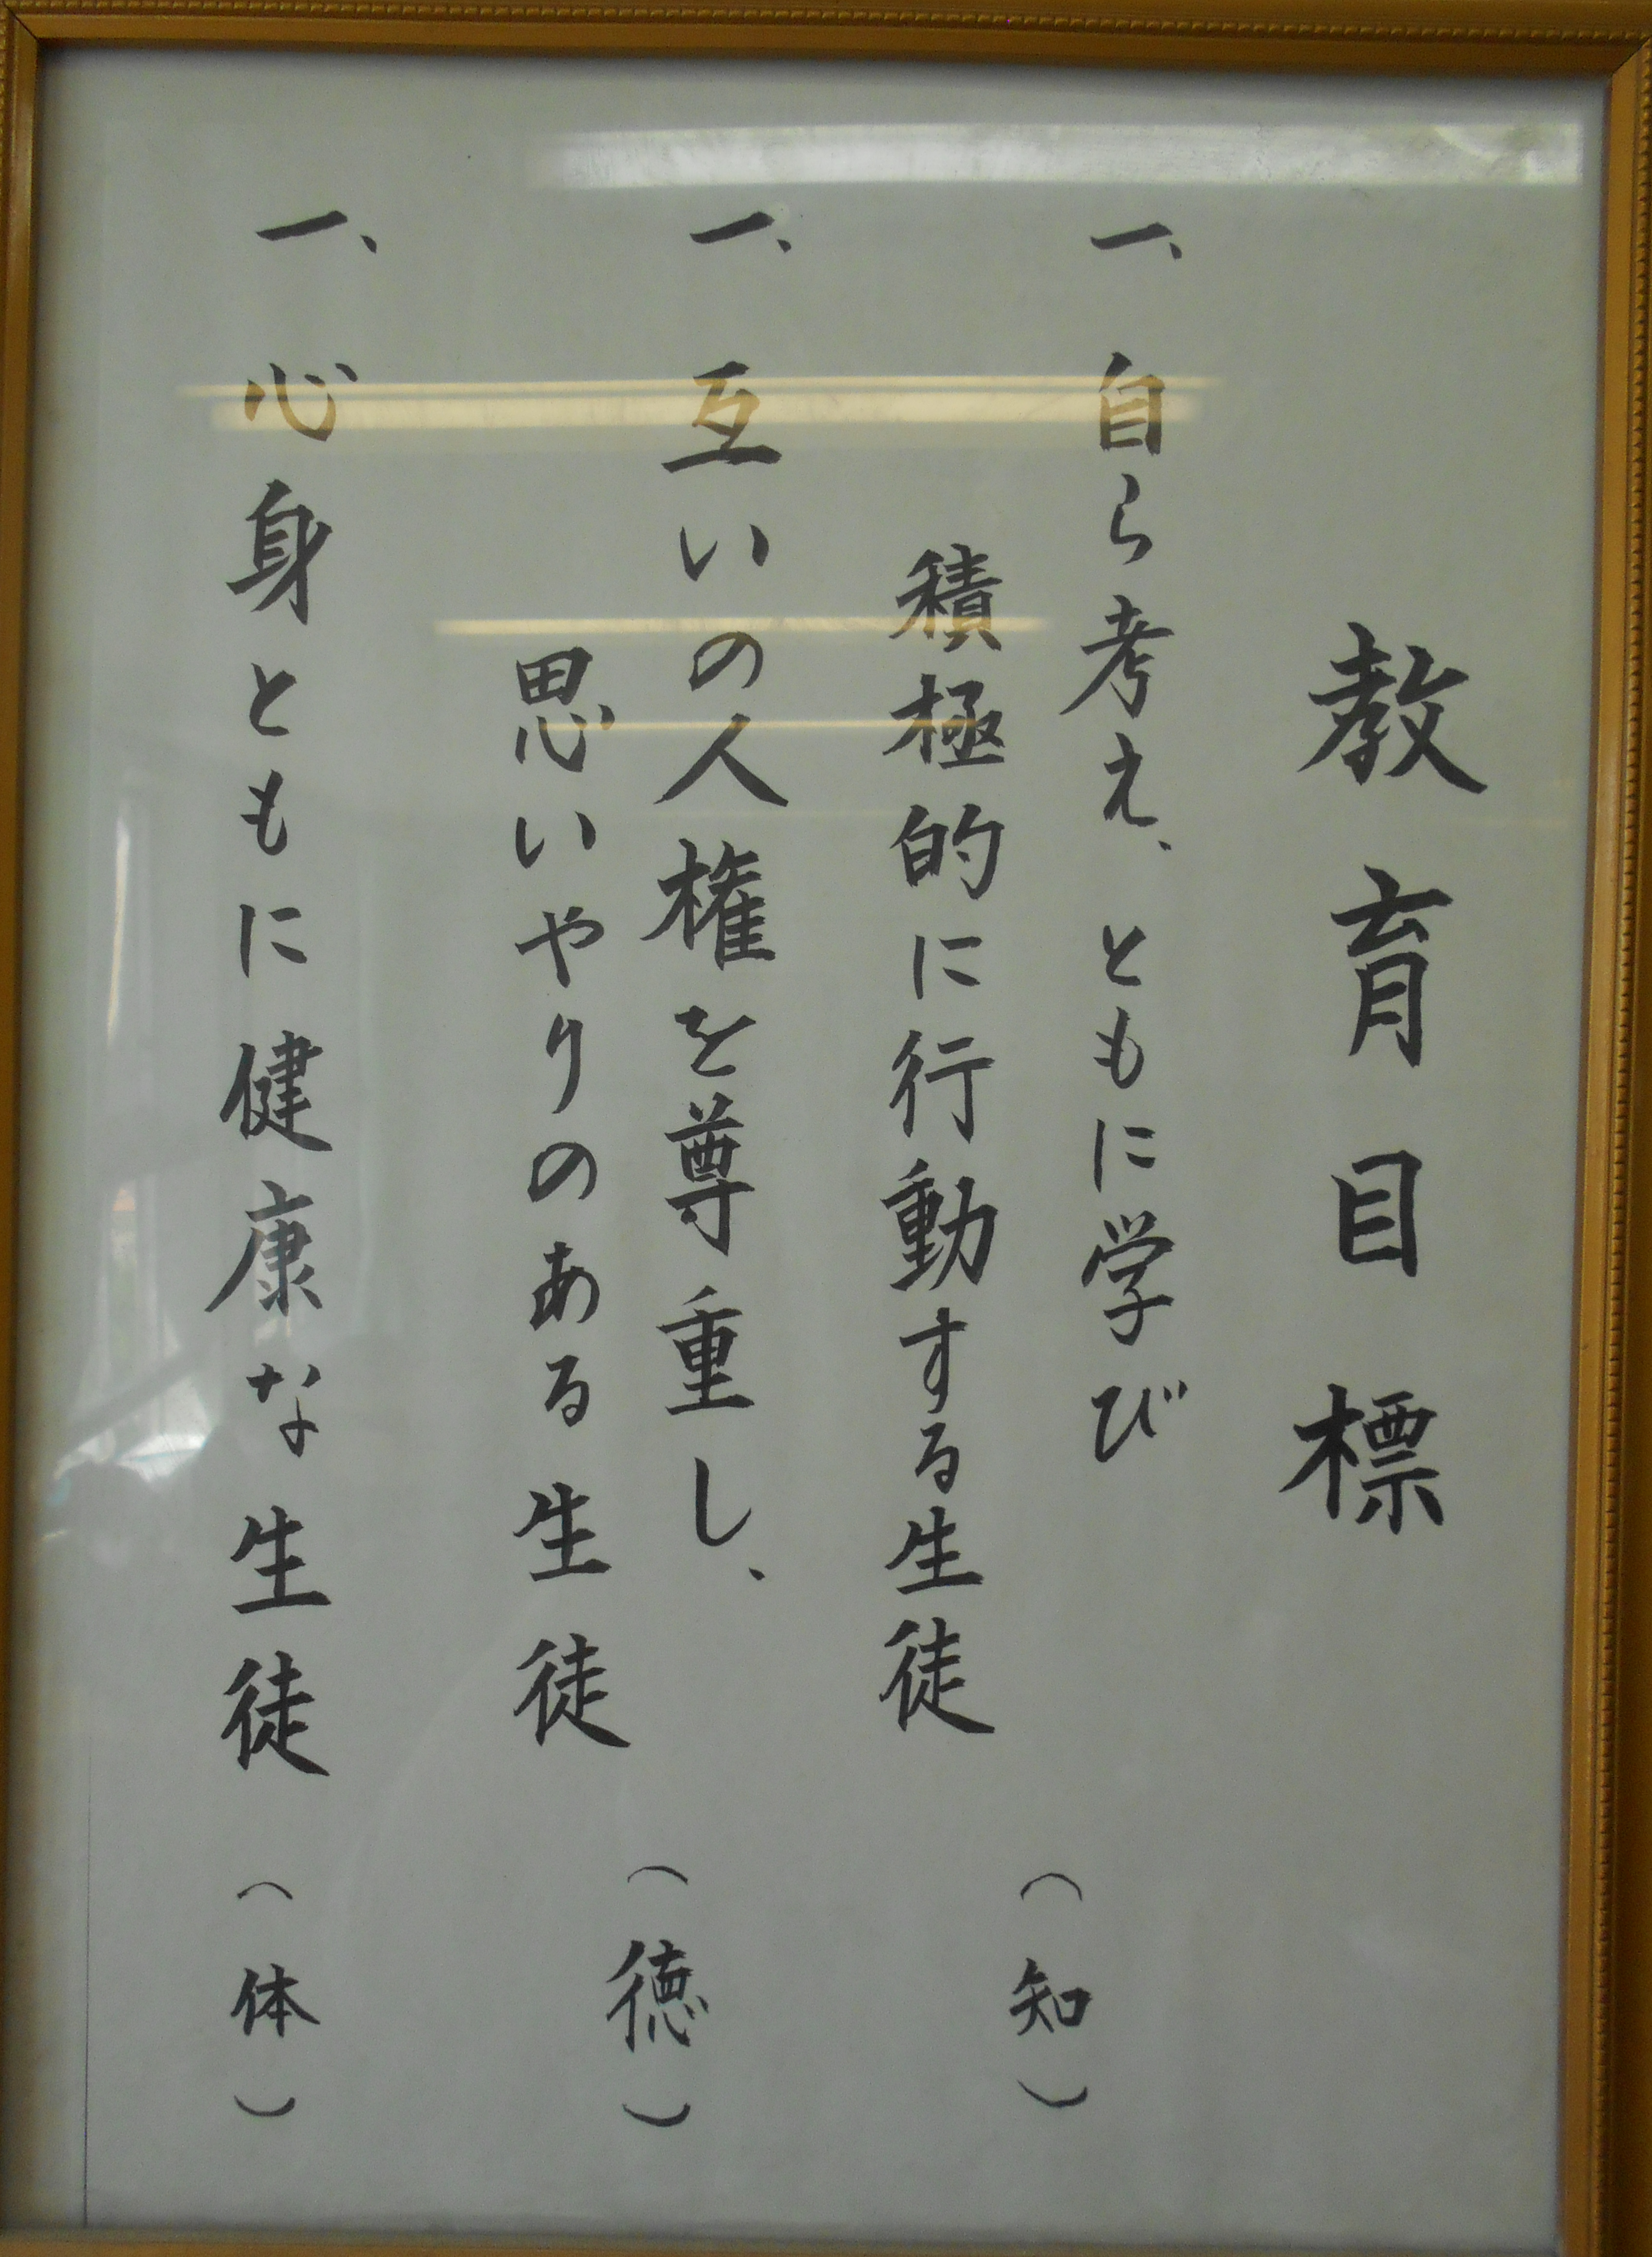 教育目標
一、自ら考え、ともに学び
積極的に行動する生徒
（知）
一、互いの人権を尊重し、
思いやりのある生徒
（徳）
一、心身ともに健康な生徒（体）